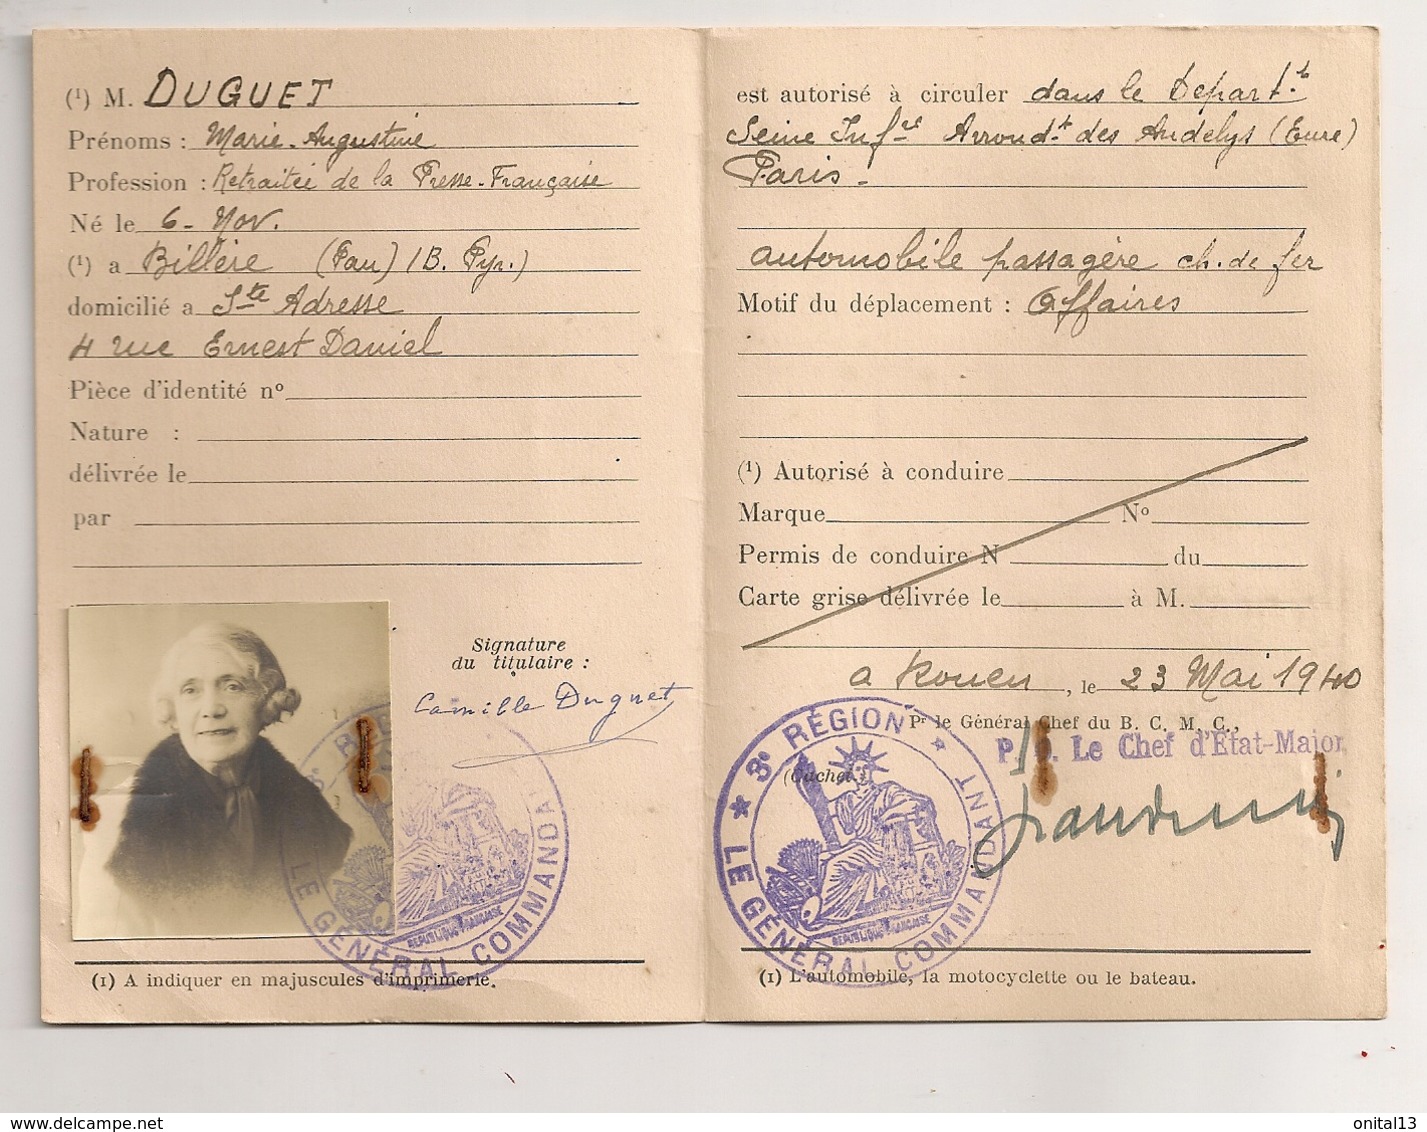 (¹) M. DUGUET
Prénoms : Marie-Augustine
Profession : Retraitée de la Presse-Française
Né le 6-Nov.
(¹) a Billère (Pau) (B. Pyr.)
domicilié a Ste Adresse
4 rue Ernest Daniel
Pièce d'identité nº
Nature :
délivrée le
par
Signature
du titulaire :
Camille Duguet
LE GÉNÉRAL COMMANDA
RÉPUBLIQUE FRANÇAISE
(1) A indiquer en majuscules d'imprimerie.
est autorisé à circuler dans le Départ.t
Seine Infre Arrondt des Andelys (Eure)
Paris-
automobile passagère ch. de fer
Motif du déplacement : Affaires
(¹) Autorisé à conduire
Marque Nº
Permis de conduire N du
Carte grise délivrée le à M.
a Rouen, le 23 Mai 1940
Pr le Général Chef du B. C. M. C.,
P. O. Le Chef d'État-Major
(Cachet)
★ 3e RÉGION ★
LE GÉNÉRAL COMMANDANT
RÉPUBLIQUE FRANÇAISE
(1) L'automobile, la motocyclette ou le bateau.
www.delcampe.net
onital13